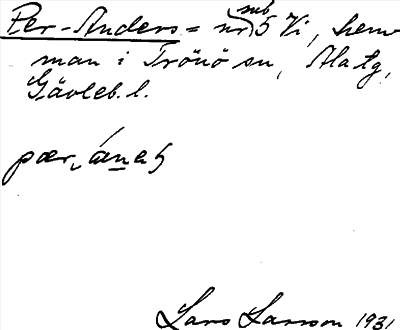 Per-Anders = nr 5 Vi, hem-
man i Trönö sn, Ala tg,
Gävleb. l.
pær, ána
Lars Larson 1931